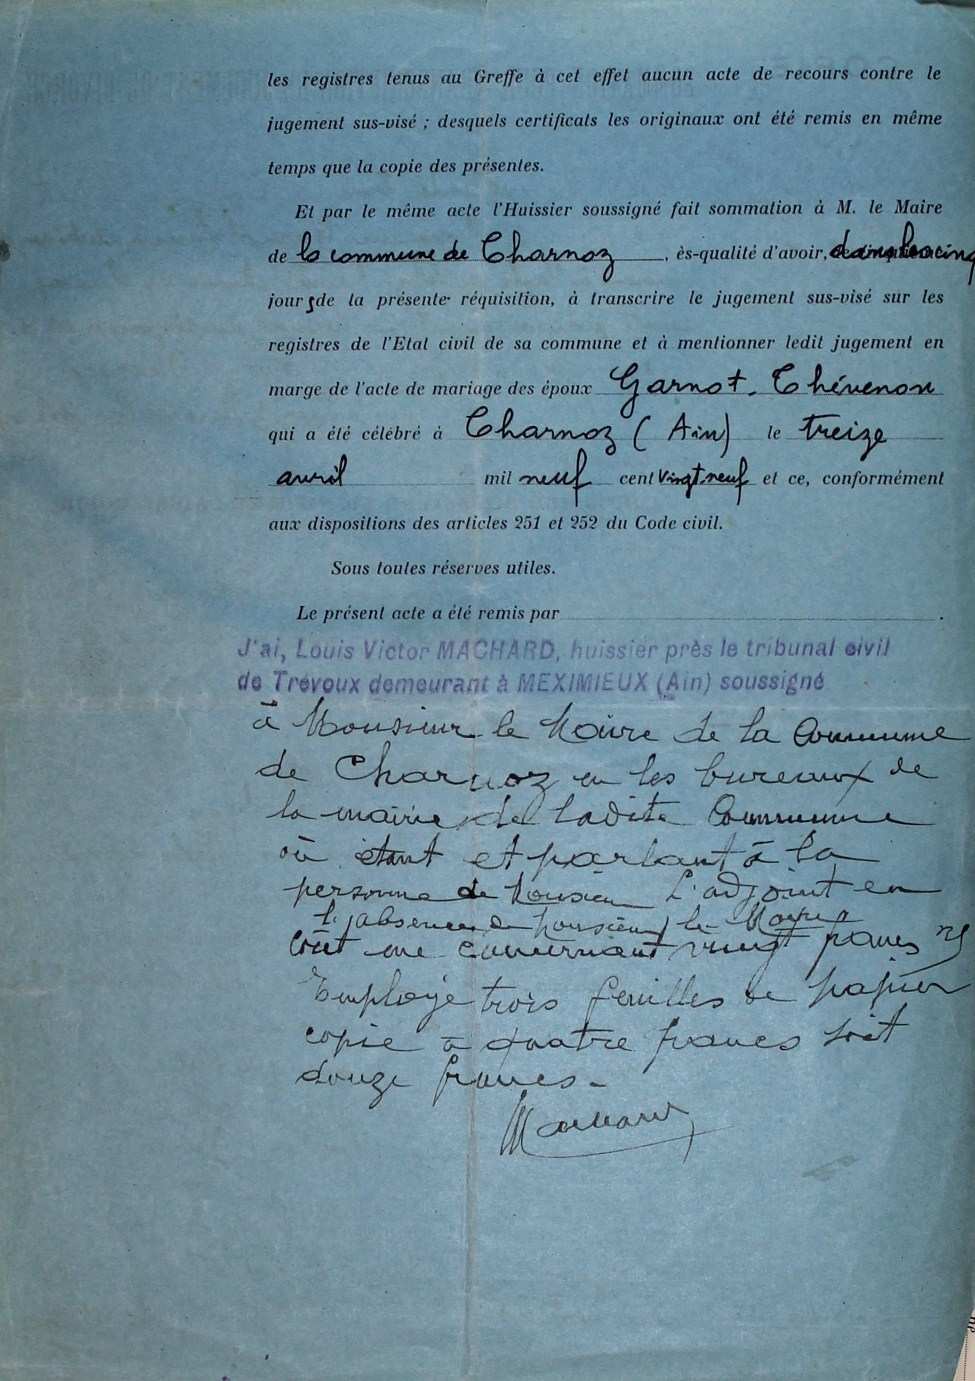 les registres tenus au Greffe à cet effet aucun acte de recours contre le
jugement sus-visé ; desquels certificats les originaux ont été remis en même
temps que la copie des présentes.
Et par le même acte l'Huissier soussigné fait sommation à M. le Maire
de la commune de Charnoz, ès-qualité d'avoir, dans les cinq
jours de la présente réquisition, à transcrire le jugement sus-visé sur les
registres de l'Etat civil de sa commune et à mentionner ledit jugement en
marge de l'acte de mariage des époux Garnot. Thévenon
qui a été célébré à Charnoz (Ain) le treize
avril mil neuf cent vingt neuf et ce, conformément
aux dispositions des articles 251 et 252 du Code civil.
Sous toutes réserves utiles.
Le présent acte a été remis par .
J'ai, Louis Victor MACHARD, huissier près le tribunal civil
de Trévoux demeurant à MEXIMIEUX (Ain) soussigné
à Monsieur le Maire de la Commune
de Charnoz en les bureaux de
la mairie de ladite Commune
où étant et parlant à la
personne de Monsieur L'adjoint en
l'absence de Monsieur le Maire
Coût cent vingt francs
Employé trois feuilles de papier
copie à quatre francs soit
douze francs -
Machard